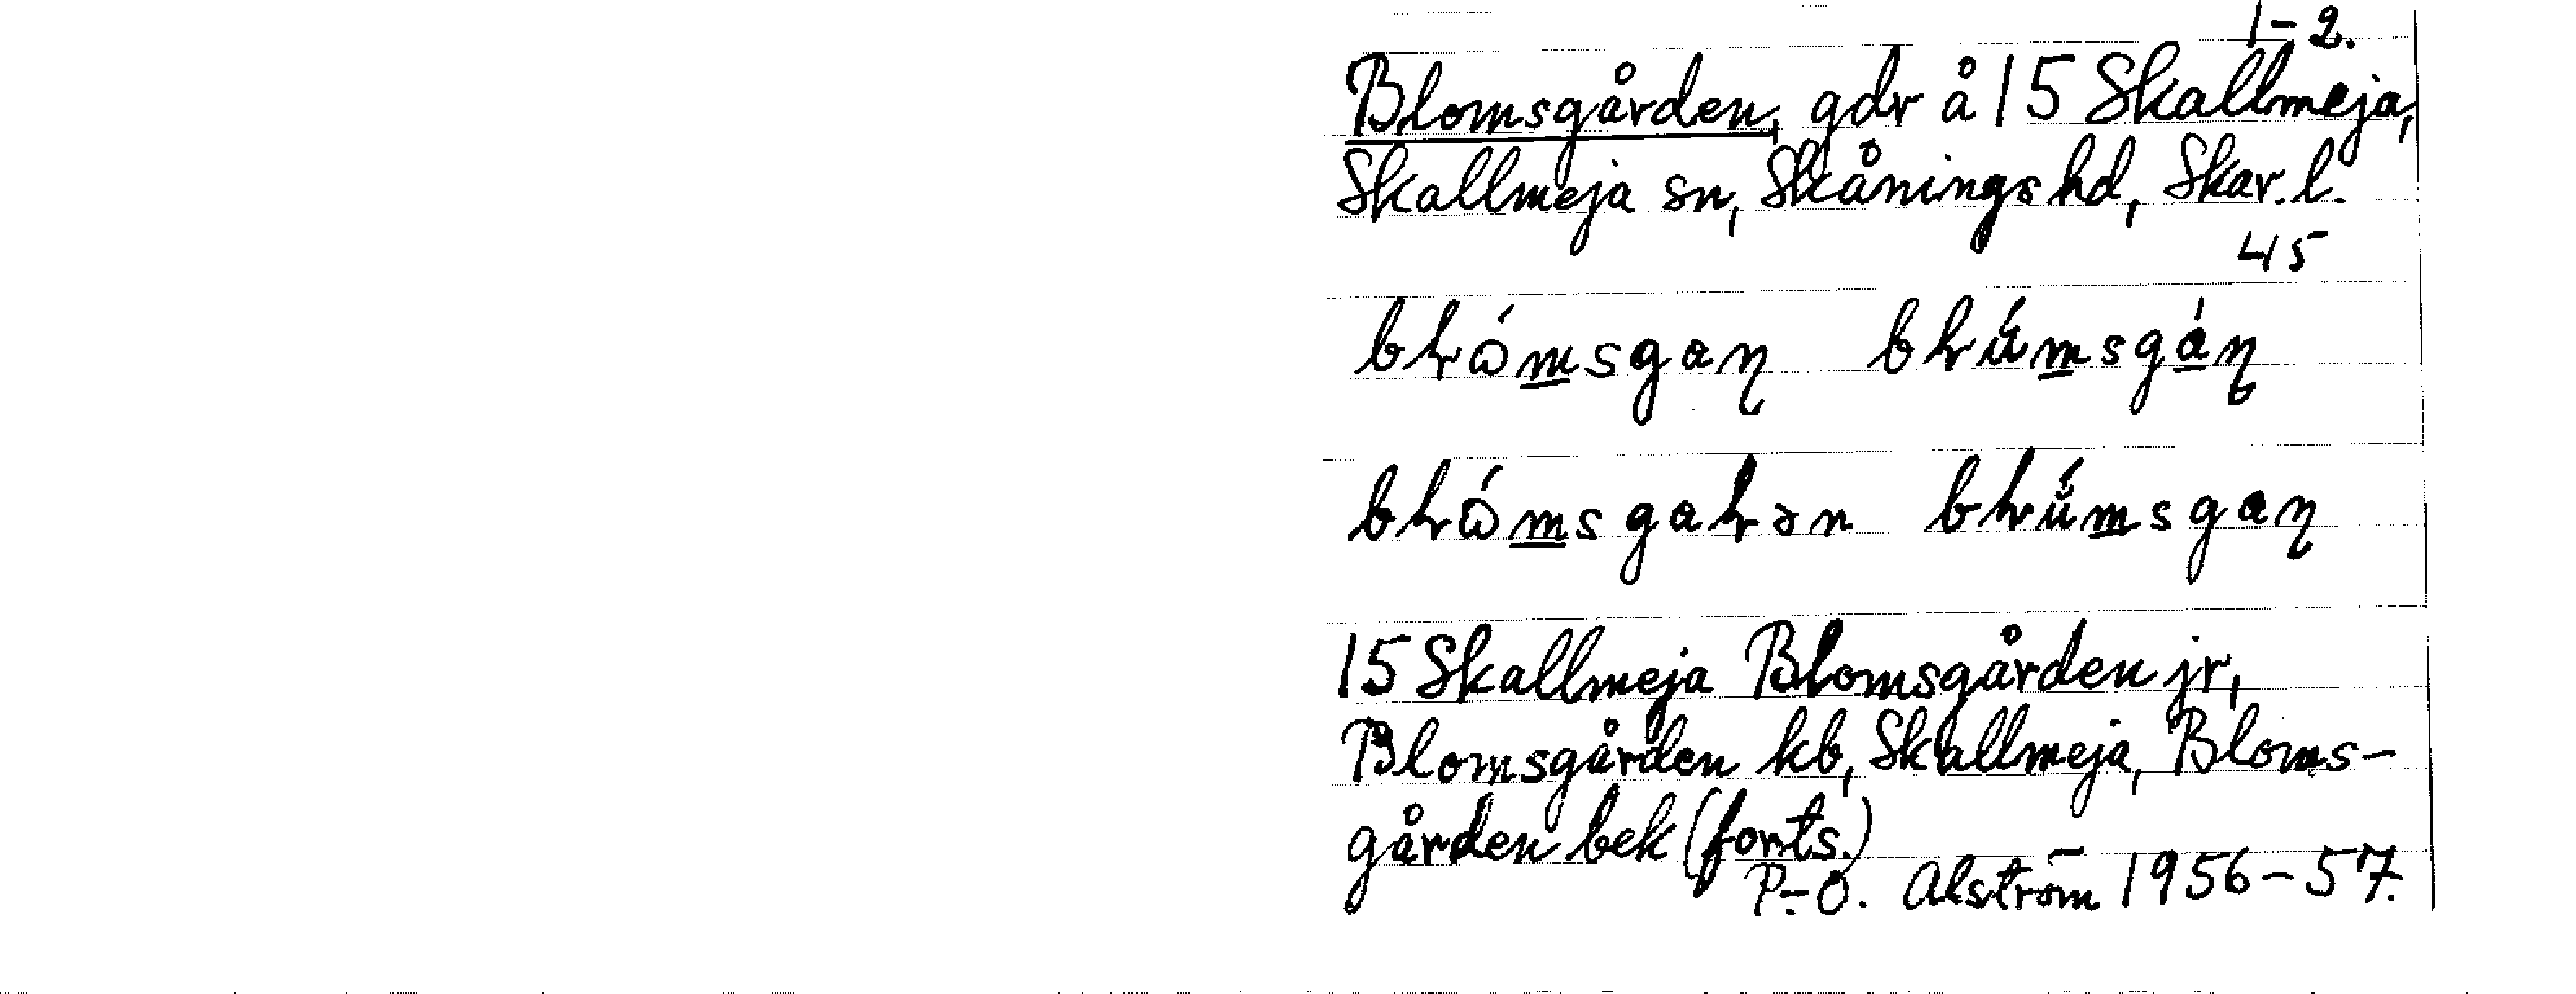 1-2.
Blomsgården, gdr å 15 Skallmeja,
Skallmeja sn, Skånings hd, Skar. l.
45
15 Skallmeja Blomsgården jr,
Blomsgården kb, Skallmeja, Bloms-
gården bek (forts.)
P.-O. Alström 1956-57.